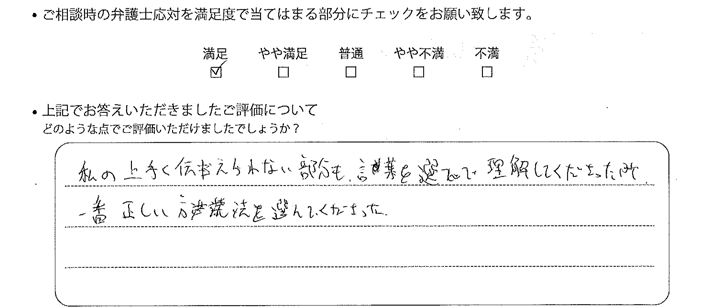 ・ご相談時の弁護士応対を満足度で当てはまる部分にチェックをお願い致します。
満足 やや満足 普通 やや不満 不満
☑ ☐ ☐ ☐ ☐
・上記でお答えいただきましたご評価について
どのような点でご評価いただけましたでしょうか？
私の上手く伝えられない部分も、言葉を選んで理解してくださった所、
一番正しい方法を選んでくださった。